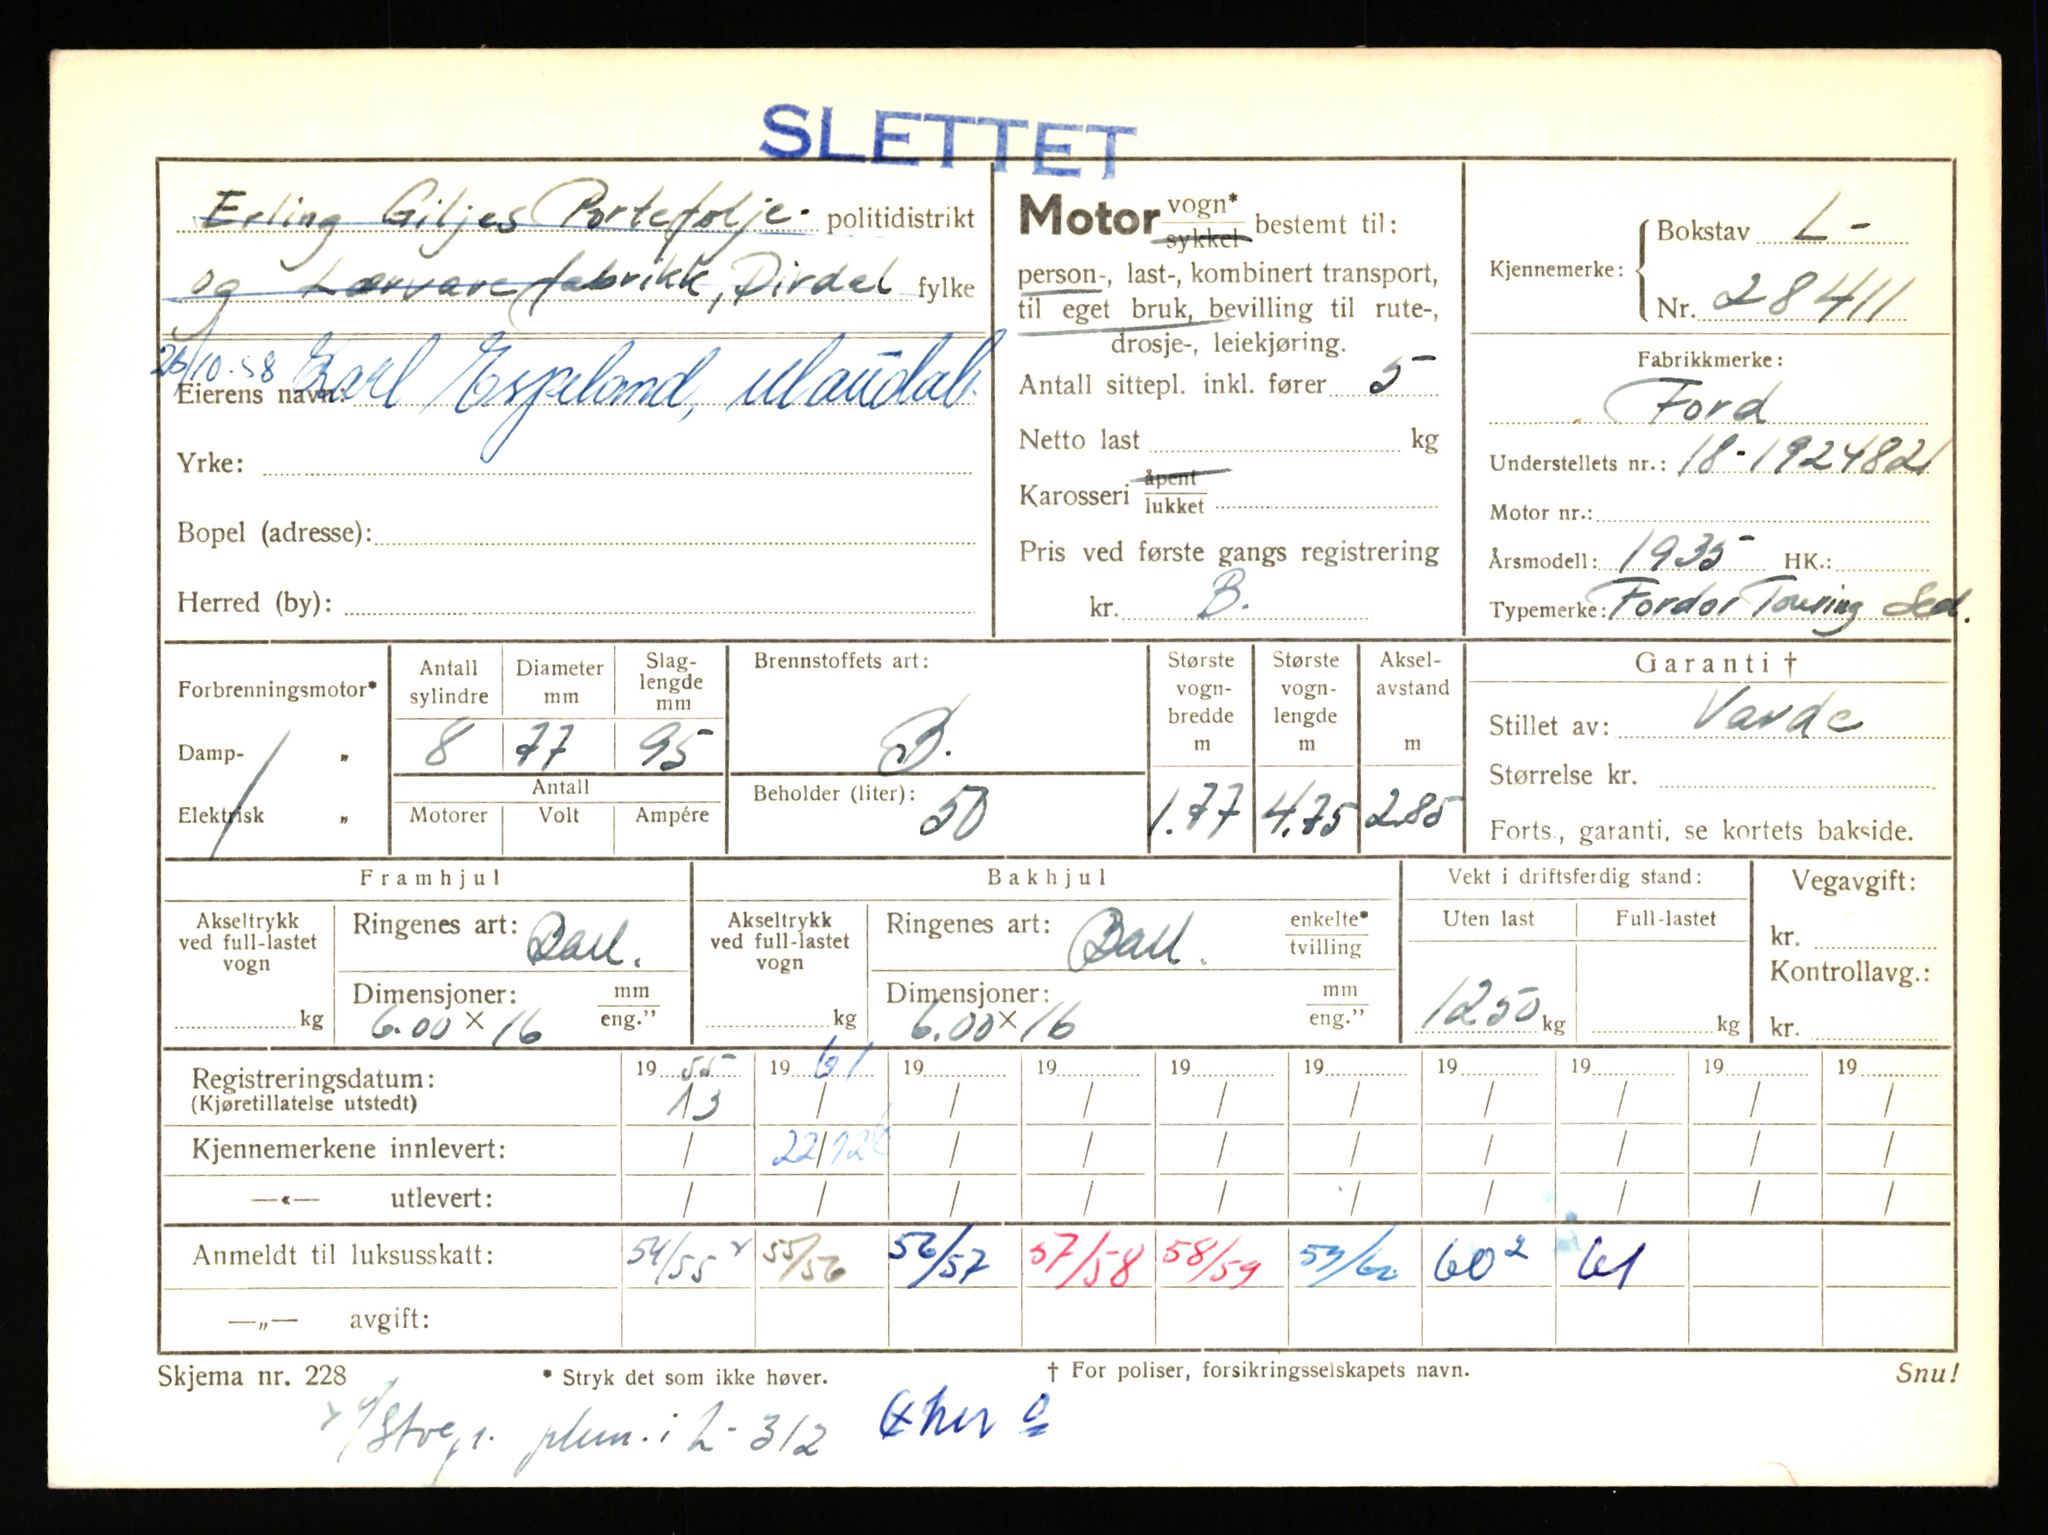 SLETTET
Erling Giljes Portefølje- politidistrikt
og Lærvarefabrikk, Dirdal fylke
26/10-58 Karl Espeland, Maudal.
Eierens navn:
Yrke:
Bopel (adresse):
Herred (by):
Motor vogn* sykkel bestemt til:
person-, last-, kombinert transport,
til eget bruk, bevilling til rute-,
drosje-, leiekjøring.
Antall sittepl. inkl. fører 5
Netto last kg
Karosseri åpent lukket
Pris ved første gangs registrering
kr. B.
Kjennemerke: Bokstav L-
Nr. 28411
Fabrikkmerke:
Ford
Understellets nr.: 18-1924821
Motor nr.:
Årsmodell: 1935 HK.:
Typemerke: Fordor Touring Sed.
Forbrenningsmotor*
Damp- „
Elektrisk „
Antall sylindre
8
Diameter mm
77
Slag-lengde mm
95
Antall
Motorer Volt Ampére
Brennstoffets art:
B.
Beholder (liter): 50
Største vogn-bredde m
1.77
Største vogn-lengde m
4.75
Aksel-avstand m
2.85
Garanti †
Stillet av: Varde
Størrelse kr.
Forts., garanti, se kortets bakside.
Framhjul
Akseltrykk ved full-lastet vogn
kg
Ringenes art: Ball.
Dimensjoner: mm eng."
6.00 × 16
Bakhjul
Akseltrykk ved full-lastet vogn
kg
Ringenes art: Ball. enkelte* tvilling
Dimensjoner: mm eng."
6.00 × 16
Vekt i driftsferdig stand:
Uten last Full-lastet
1250 kg kg
Vegavgift:
kr.
Kontrollavg.:
kr.
Registreringsdatum: 19 55 19 61 19 19 19 19 19 19 19 19
(Kjøretillatelse utstedt) 1/3 / / / / / / / / /
Kjennemerkene innlevert: / 22/12 / / / / / / / /
—«— utlevert: / / / / / / / / / /
Anmeldt til luksusskatt: 54/55 55/56 56/57 57/58 58/59 59/60 60² 61
—„— avgift:
Skjema nr. 228 * Stryk det som ikke høver. † For poliser, forsikringsselskapets navn. Snu!
i L-312